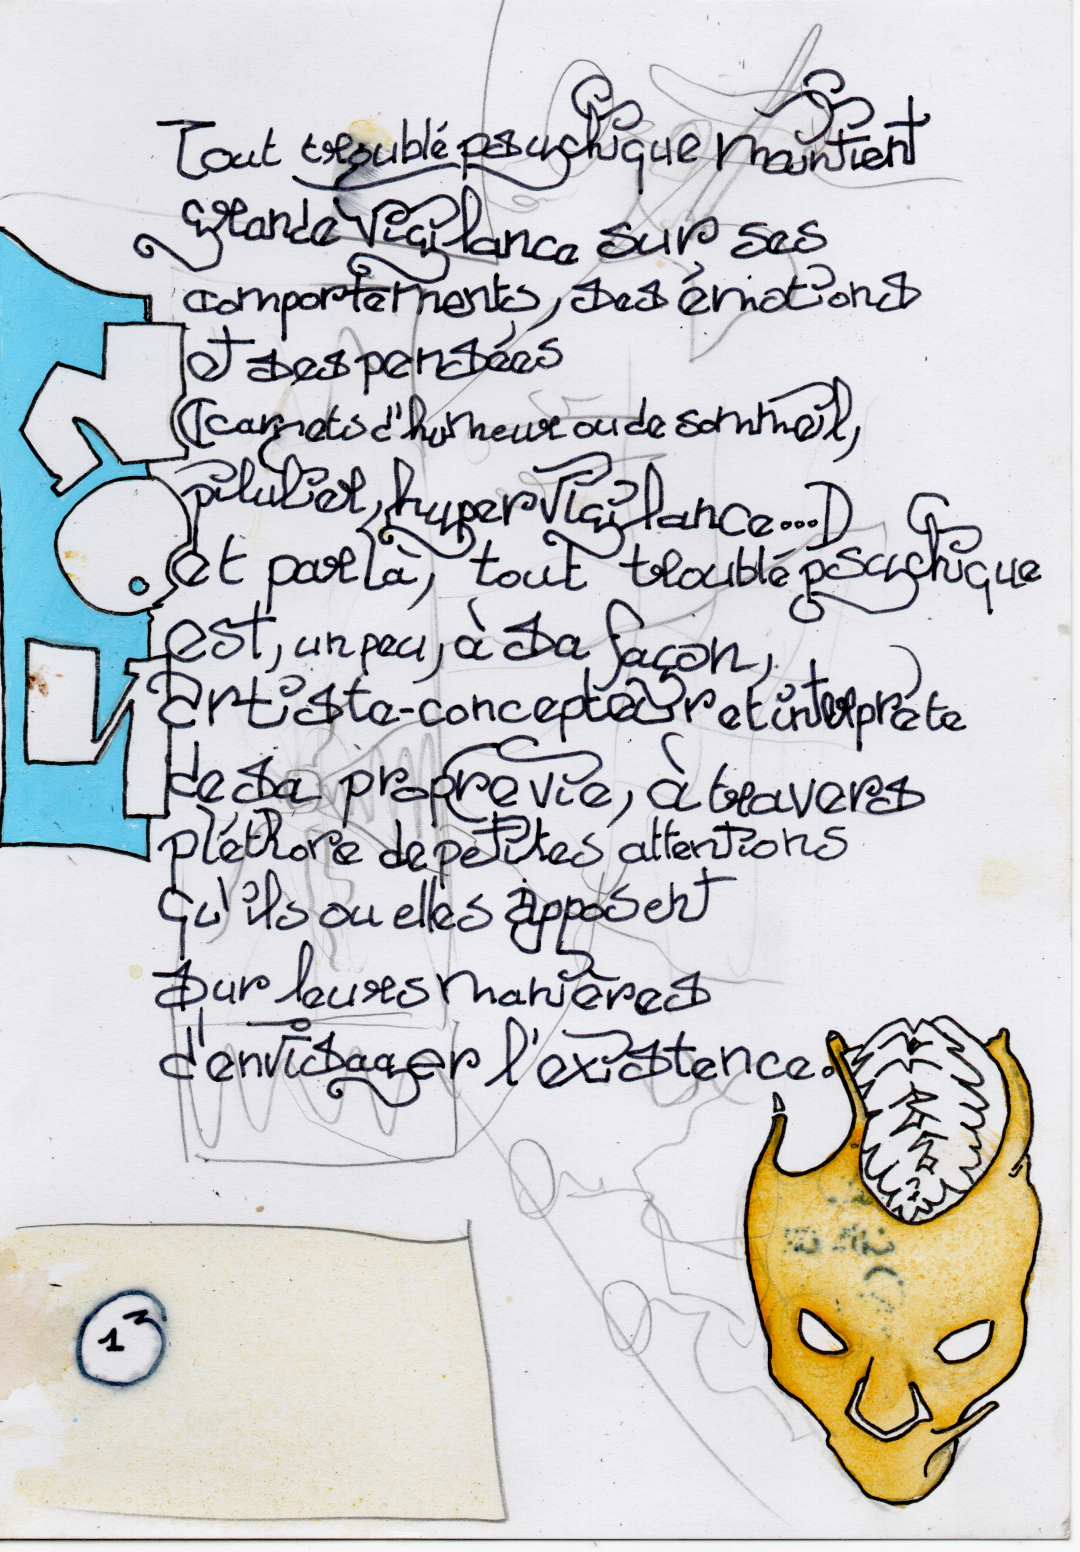 Tout troublé psychique maintient
grande vigilance sur ses
comportements, ses émotions
et ses pensées
(carnets d'humeur ou de sommeil,
pilulier, hypervigilance...)
et par là, tout troublé psychique
est, un peu, à sa façon,
artiste-concepteur et interprète
de sa propre vie, à travers
pléthore de petites attentions
qu'ils ou elles apposent
sur leurs manières
d'envisager l'existence.